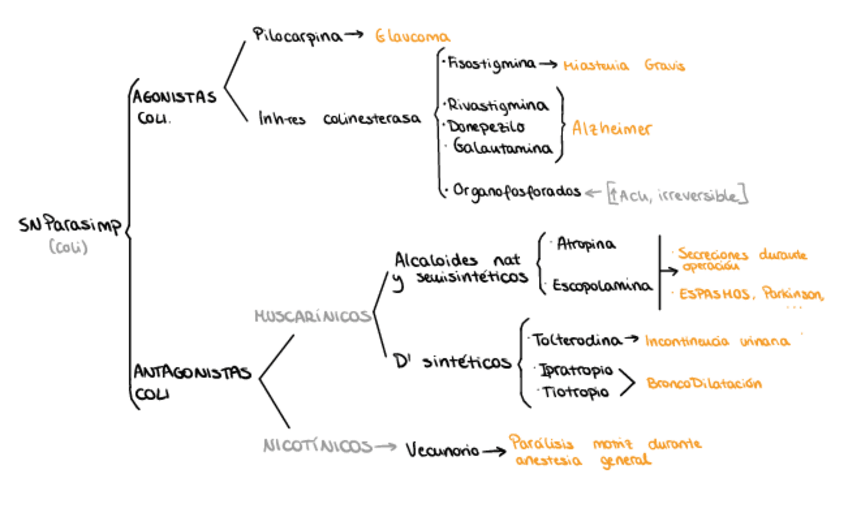 Pilocarpina → Glaucoma
AGONISTAS
COLI.
Inh-res colinesterasa
· Fisostigmina → Miastenia Gravis
· Rivastigmina
· Donepezilo
· Galautamina
Alzheimer
· Organofosforados ← [↑Ach, irreversible]
SN Parasimp
(coli)
Alcaloides nat
y semisintéticos
· Atropina
· Escopolamina
· Secreciones durante
operación
· ESPASMOS, Parkinson,
...
MUSCARÍNICOS
D' sintéticos
· Tolterodina → Incontinencia urinaria
· Ipratropio
· Tiotropio
BroncoDilatación
ANTAGONISTAS
COLI
NICOTÍNICOS → Vecunorio → Parálisis motriz durante
anestesia general